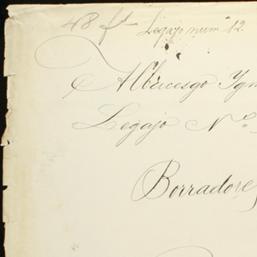 48 ft Legajo num 12.
Albucasgo Ygn
Legajo No.
Borradores